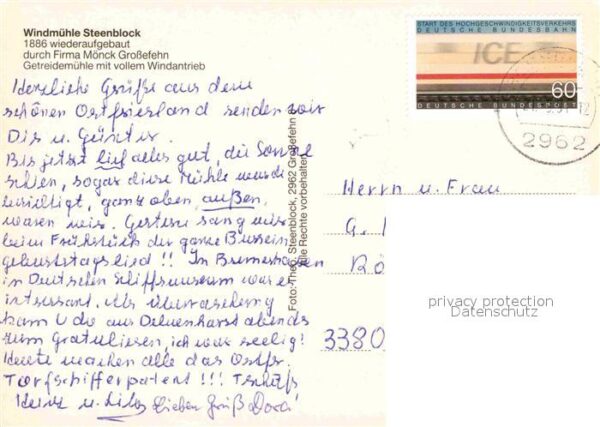 Windmühle Steenblock
1886 wiederaufgebaut
durch Firma Mönck Großefehn
Getreidemühle mit vollem Windantrieb
Herzliche Grüße aus dem
schönen Ostfriesland senden wir
Dir u. Günter.
Bis jetzt lief alles gut, die Sonne
schien, sogar diese Mühle wurde
bewilligt, ganz oben, außen,
waren wir. Gestern sang mir
beim Frühstück der ganze Bus ein
Geburtstagslied !! In Bremerhaven
in Deutschen Schiffsmuseum war es
interssant. Als Überraschung
kam U die aus Delmenhorst abends
zum Gratulieren, ich war seelig!
Heute machen alle das Ostfr.
Torfschifferpatent !!! Tschüß
Heinz u. Lieben Gruß
Foto: Theo. Steenblock, 2962 Großefehn
Alle Rechte vorbehalten
START DES HOCHGESCHWINDIGKEITSVERKEHRS
DEUTSCHE BUNDESBAHN
ICE
60
DEUTSCHE BUNDESPOST
2962
Herrn u. Frau
G.
3380
privacy protection
Datenschutz